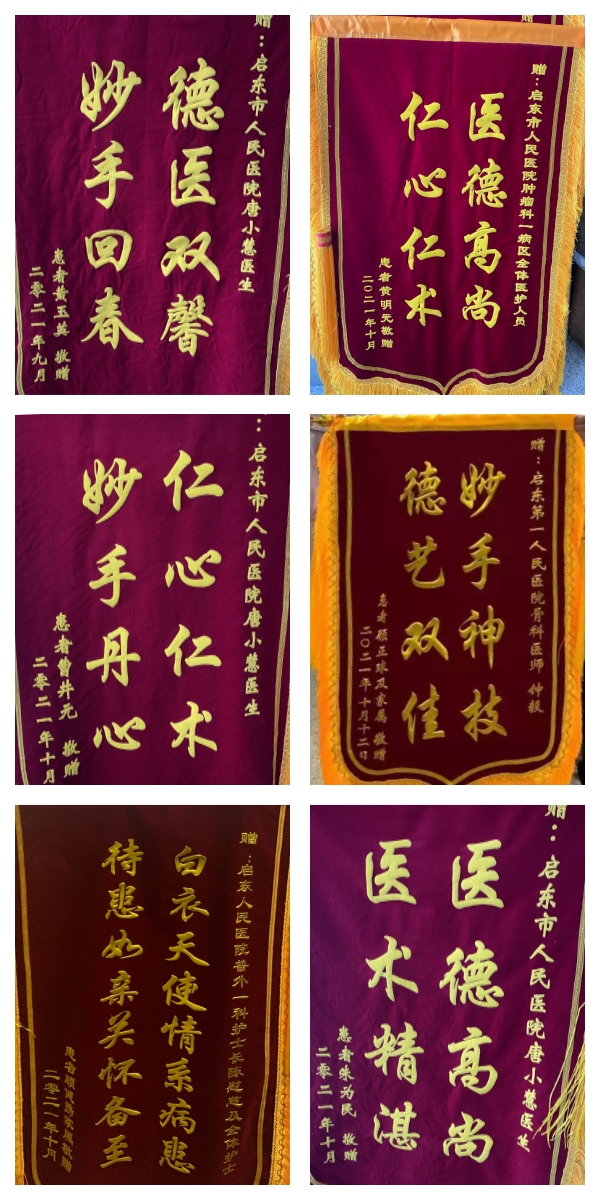 赠：启东市人民医院唐小慧医生
德医双馨
妙手回春
患者黄玉英 敬赠
二零二一年九月
赠：启东市人民医院肿瘤科一病区全体医护人员
医德高尚
仁心仁术
患者黄明元敬赠
二〇二一年十月
：启东市人民医院唐小慧医生
仁心仁术
妙手丹心
患者曹井元 敬赠
二零二一年十月
赠：启东第一人民医院骨科医师 钟毅
妙手神技
德艺双佳
患者顾正球及家属 敬赠
二〇二一年十月十二日
赠：启东人民医院普外一科护士长陈 及全体护士
白衣天使情系病患
待患如亲关怀备至
患者 家属敬赠
二零二一年十月
赠：启东市人民医院唐小慧医生
医德高尚
医术精湛
患者朱为民 敬赠
二零二一年十月